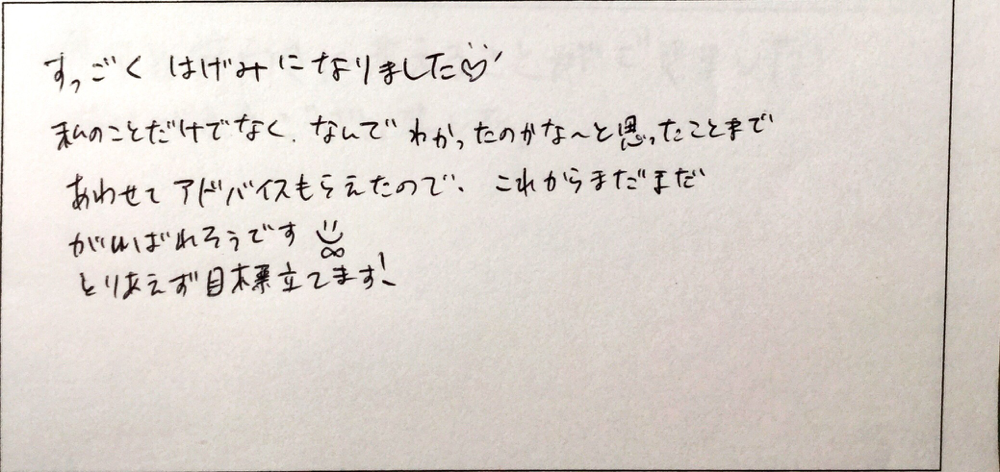 すっごく はげみになりました♡
私のことだけでなく、なんでわかったのかな〜と思ったことまで
あわせて アドバイスもらえたので、これからまだまだ
がんばれそうです
とりあえず目標立てます!